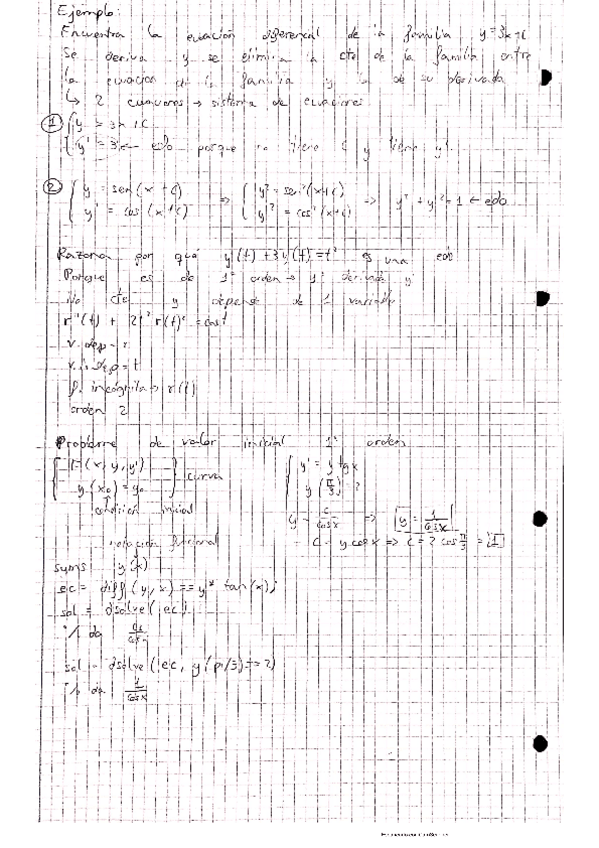 Ejemplo:
Encuentra la ecuación diferencial de la familia y=3x+C
Se deriva y se elimina la cte de la familia entre
la ecuación de la familia y la de su derivada
↳ 2 ecuaciones → sistema de ecuaciones
① { y = 3x + C
y' = 3 ← edo porque no tiene C y tiene y'
② { y = sen(x+C) ⇒ { y² = sen²(x+C) ⇒ y² + y'² = 1 ← edo
y' = cos(x+C) y'² = cos²(x+C)
Razona por qué y'(t) + 3y(t) = t² es una edo
Porque es de 1º orden → 1ª derivada y'
y depende de 1 variable
r''(t) + 2t² r(t)² = cos t
v. dep = r
v. indep = t
f. incógnita → r(t)
orden 2
Problema de valor inicial 1º orden
{ F(x, y, y') } curva { y' = y tgx
y(x₀) = y₀ y(π/3) = 2
condición inicial
y = C/cosx ⇒ y = 1/cosx
C = y cosx ⇒ C = 2 cos π/3 = 1
notación funcional
syms y(x)
ec = diff(y,x) == y* tan(x);
sol = dsolve(ec)
% da
sol = dsolve(ec, y(pi/3)==2)
% da 1/cosx